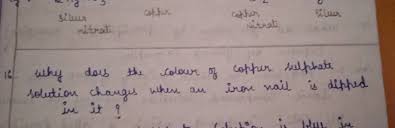 silver copper copper silver
nitrate nitrate
16 why does the colour of copper sulphate
solution changes when an iron nail is dipped
in it ?